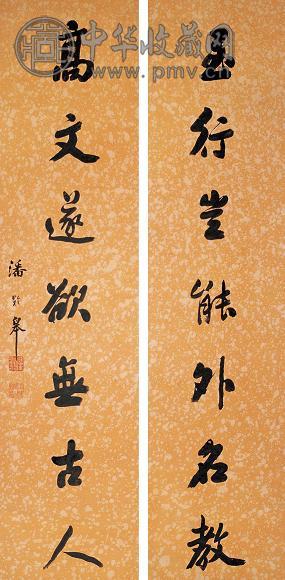 至行豈能外名教
高文遂欲無古人
潘齡皋
中华收藏网
www.pmv.cn